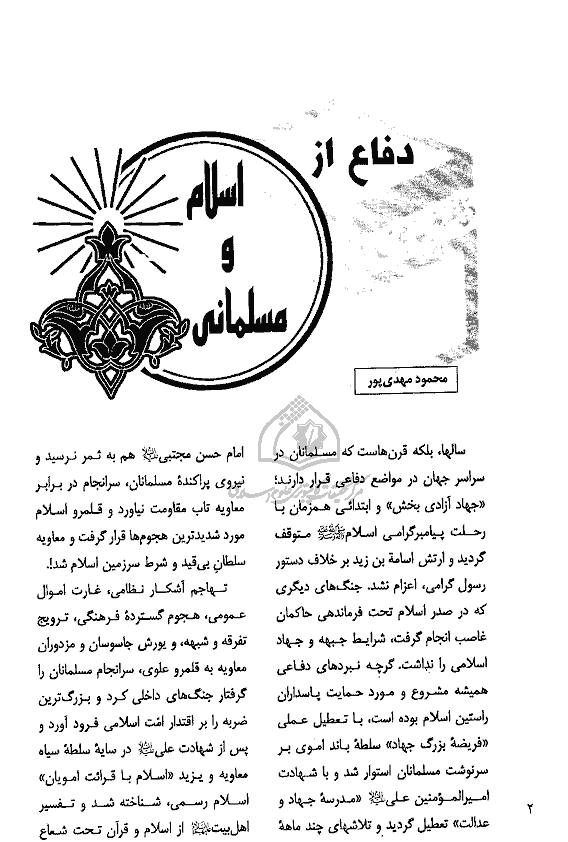 دفاع از
اسلام
و
مسلمانی
محمود مهدی‌پور
سالها، بلکه قرن‌هاست که مسلمانان در
سراسر جهان در مواضع دفاعی قرار دارند؛
«جهاد آزادی بخش» و ابتدائی همزمان با
رحلت پیامبرگرامی اسلامﷺ متوقف
گردید و ارتش اسامة بن زید بر خلاف دستور
رسول گرامی، اعزام نشد. جنگ‌های دیگری
که در صدر اسلام تحت فرماندهی حاکمان
غاصب انجام گرفت، شرایط جبهه و جهاد
اسلامی را نداشت. گرچه نبردهای دفاعی
همیشه مشروع و مورد حمایت پاسداران
راستین اسلام بوده است، با تعطیل عملی
«فریضهٔ بزرگ جهاد» سلطهٔ باند اموی بر
سرنوشت مسلمانان استوار شد و با شهادت
امیرالمؤمنین علی «مدرسهٔ جهاد و
عدالت» تعطیل گردید و تلاشهای چند ماههٔ
امام حسن مجتبی هم به ثمر نرسید و
نیروی پراکندهٔ مسلمانان، سرانجام در برابر
معاویه تاب مقاومت نیاورد و قلمرو اسلام
مورد شدیدترین هجوم‌ها قرار گرفت و معاویه
سلطان بی‌قید و شرط سرزمین اسلام شد!.
تهاجم آشکار نظامی، غارت اموال
عمومی، هجوم گستردهٔ فرهنگی، ترویج
تفرقه و شبهه، و یورش جاسوسان و مزدوران
معاویه به قلمرو علوی، سرانجام مسلمانان را
گرفتار جنگ‌های داخلی کرد و بزرگ‌ترین
ضربه را بر اقتدار امّت اسلامی فرود آورد و
پس از شهادت علی در سایهٔ سلطهٔ سیاه
معاویه و یزید «اسلام با قرائت امویان»
اسلام رسمی، شناخته شد و تفسیر
اهل‌بیت از اسلام و قرآن تحت شعاع
۲